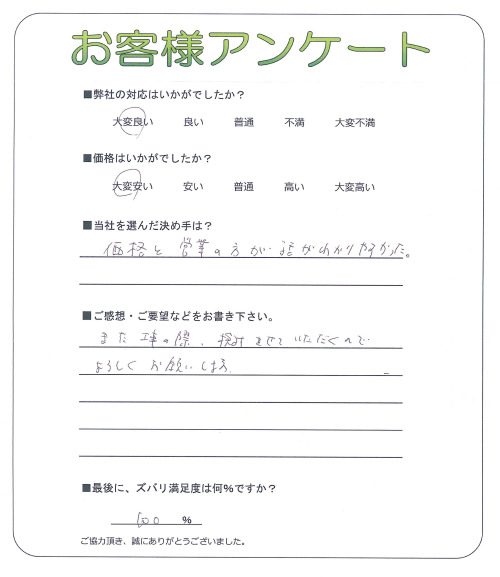 お客様アンケート
■弊社の対応はいかがでしたか？
大変良い 良い 普通 不満 大変不満
■価格はいかがでしたか？
大変安い 安い 普通 高い 大変高い
■当社を選んだ決め手は？
価格と営業の方が話がわかりやすかった。
■ご感想・ご要望などをお書き下さい。
また工事の際、検討させていただくので
よろしくお願いします。
■最後に、ズバリ満足度は何%ですか？
100 %
ご協力頂き、誠にありがとうございました。